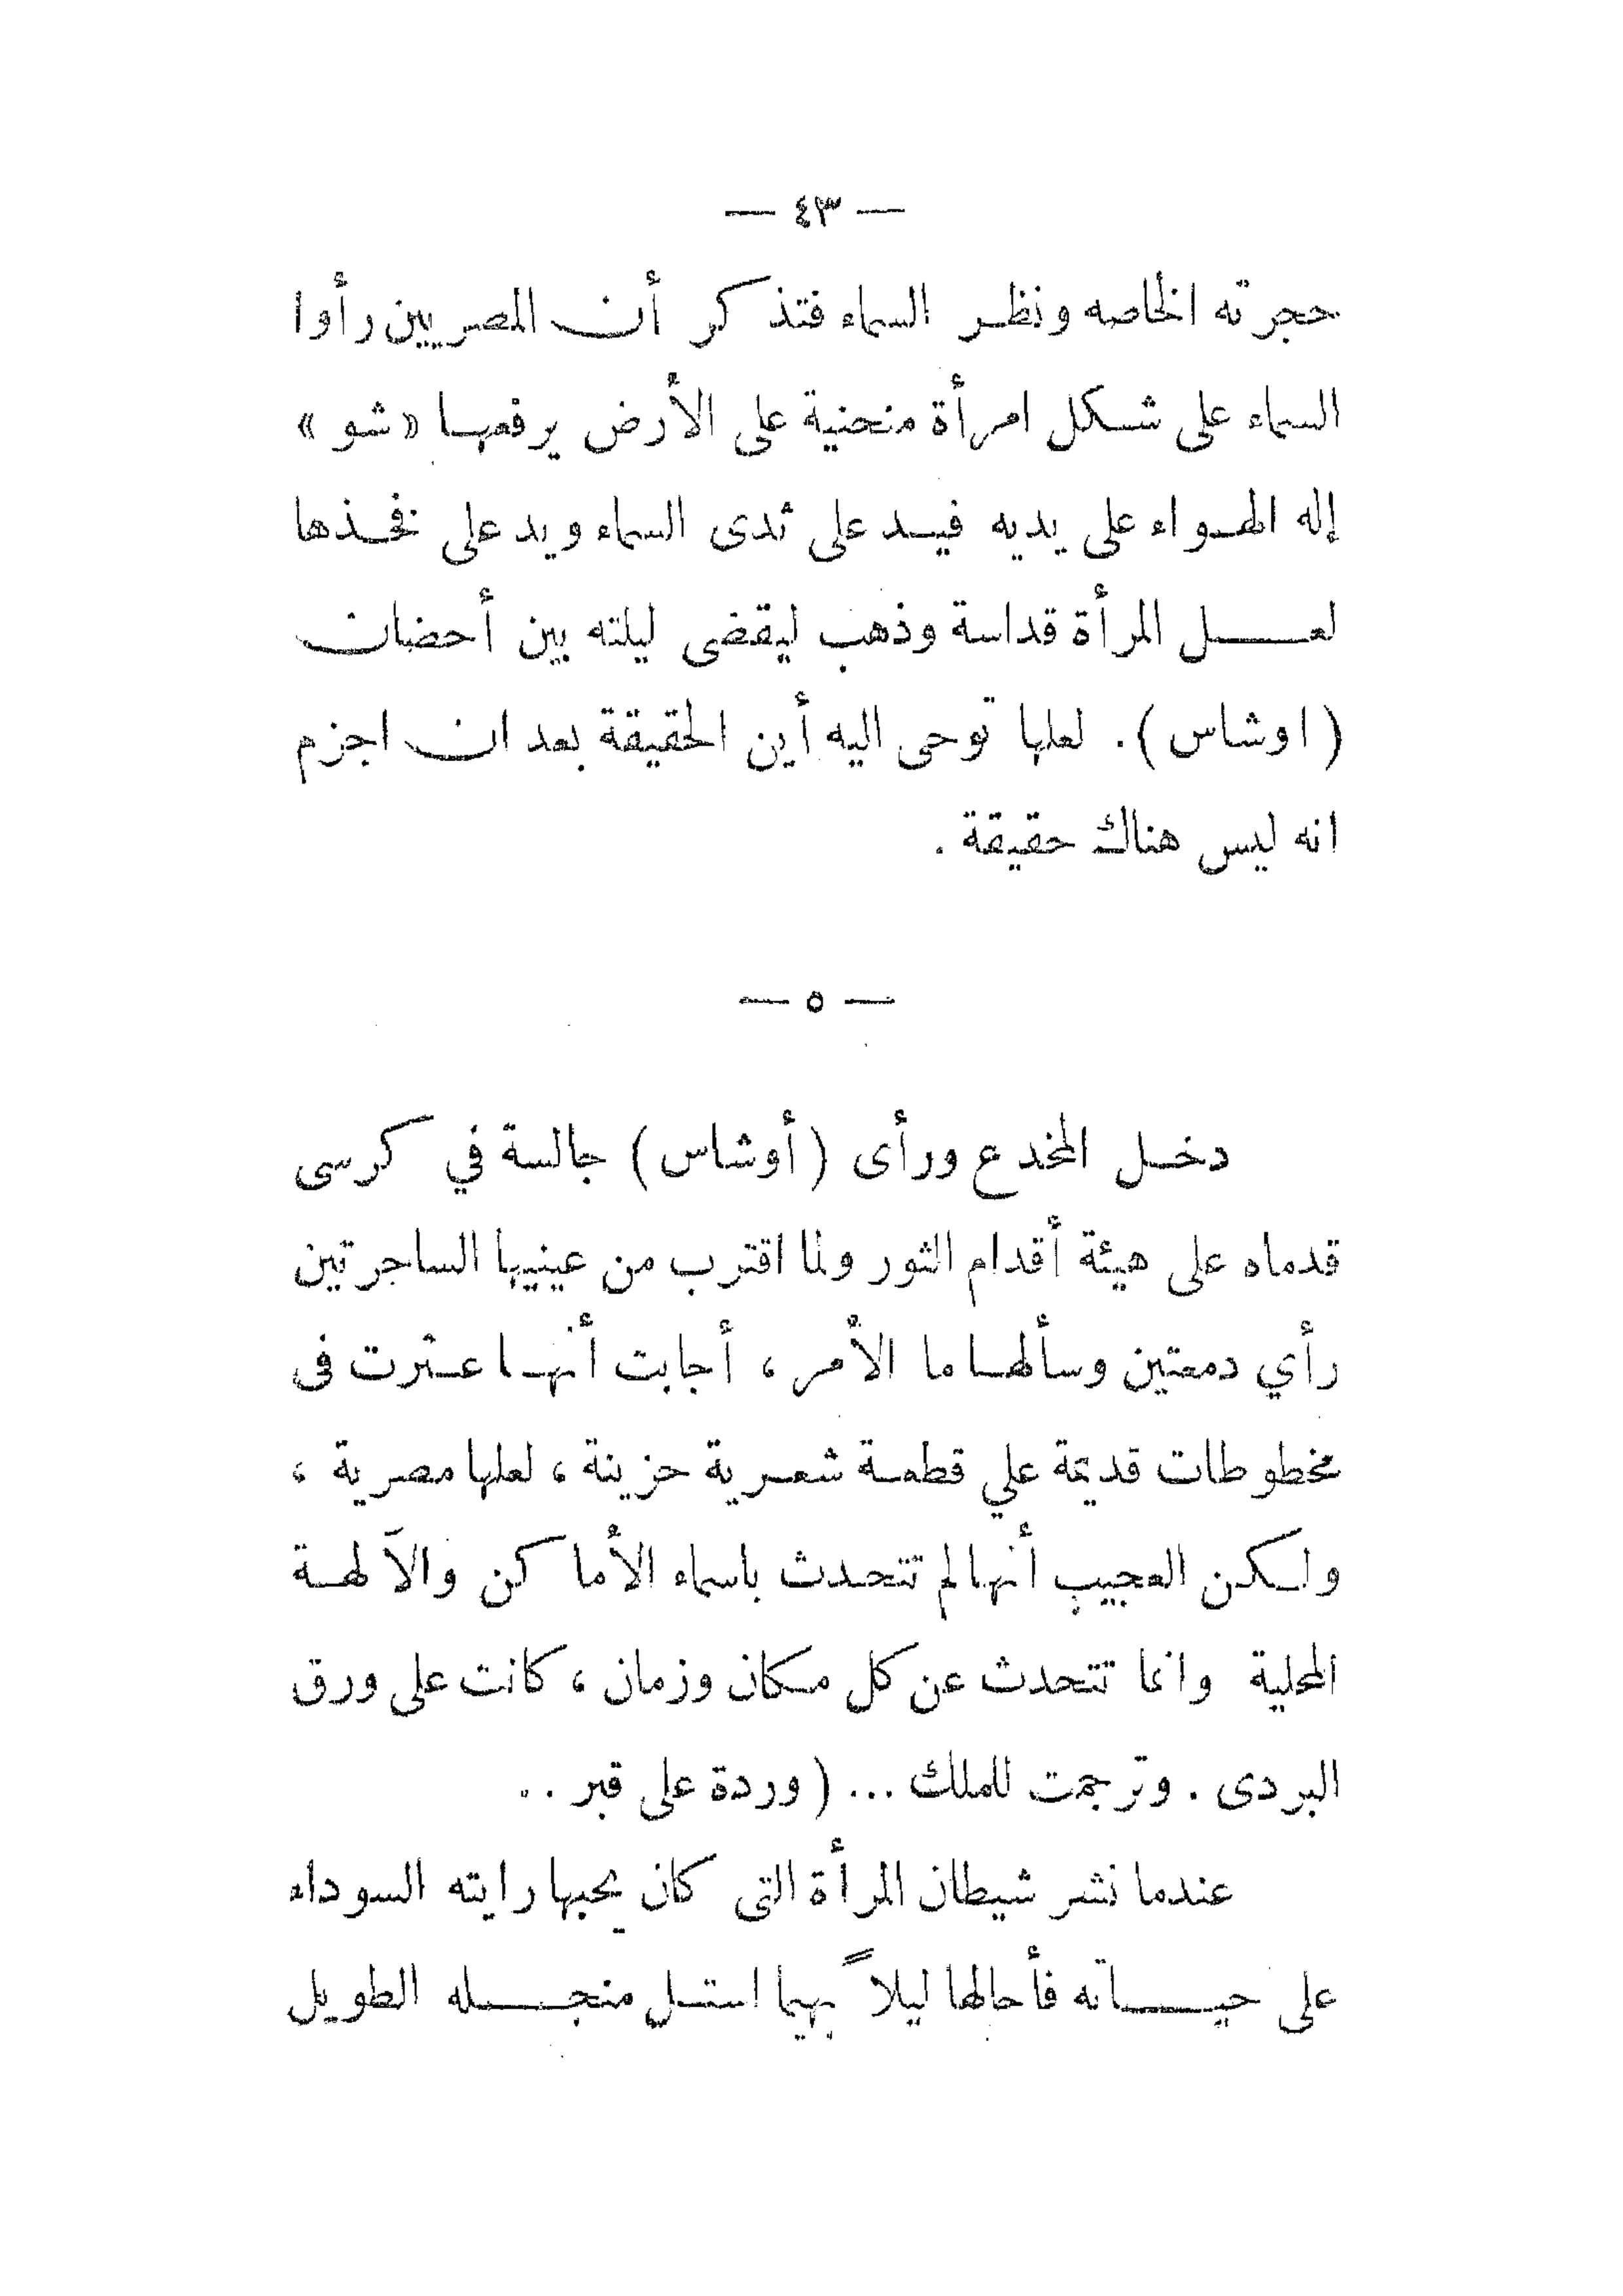 — ٤٣ —
حجرته الخاصه ونظر السماء فتذكر أن المصريين رأوا
السماء على شكل امرأة منحنية على الأرض يرفعها «شو»
إله الهواء على يديه فيد على ثدى السماء ويد على فخذها
لعل المرأة قداسة وذهب ليقضى ليلته بين أحضان
( اوشاس ) . لعلها توحى اليه أين الحقيقة بعد ان اجزم
انه ليس هناك حقيقة .
— ٥ —
دخل المخدع ورأى ( أوشاس ) جالسة في كرسى
قدماه على هيئة أقدام الثور ولما اقترب من عينيها الساجرتين
رأي دمعتين وسألها ما الأمر ، أجابت أنها عثرت فى
مخطوطات قديمة علي قطعة شعرية حزينة ، لعلها مصرية ،
ولكن العجيب أنها لم تتحدث باسماء الأماكن والآلهة
المحلية وانما تتحدث عن كل مكان وزمان ، كانت على ورق
البردى . وترجمت للملك ... ( وردة على قبر . .
عندما نشر شيطان المرأة التى كان يحبها رايته السوداء
على حياته فأحالها ليلاً بهيما استل منجله الطويل